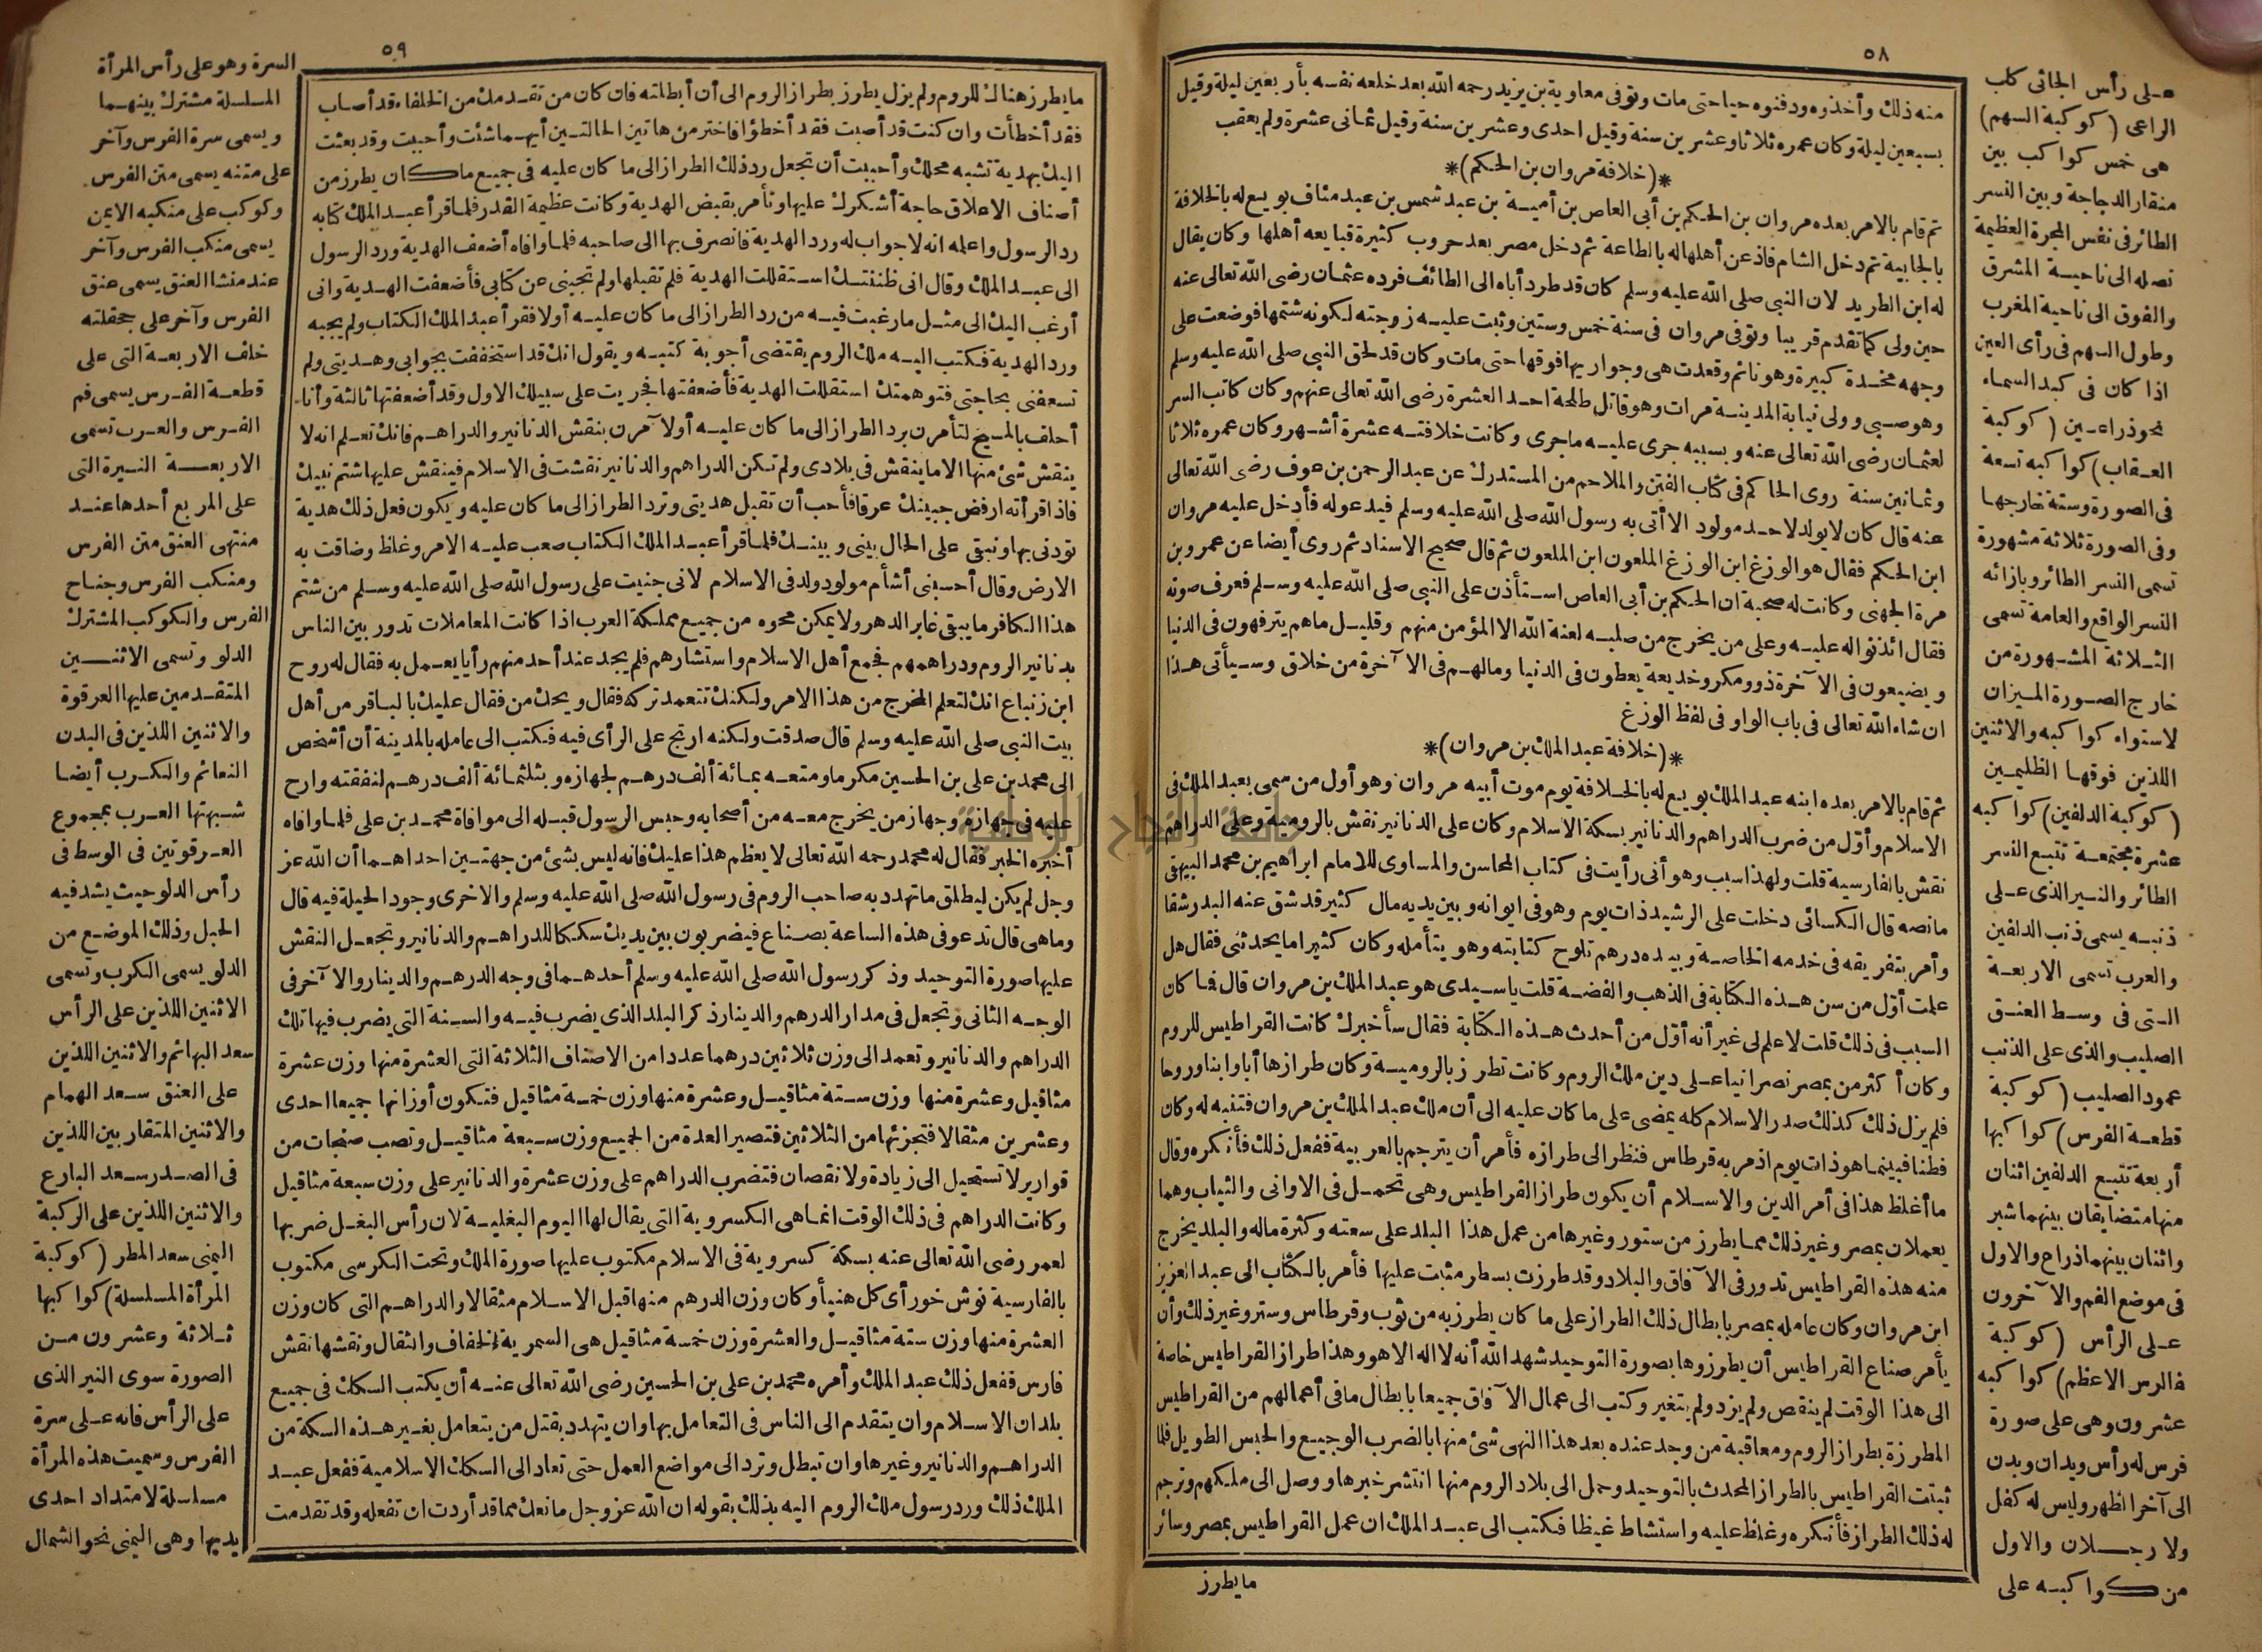 ٥٨
منه ذلك وأخذوه ودفنوه حيا حتى مات وتوفى معاوية بن يزيد رحمه الله بعد خلعه نفسه بأربعين ليلة وقيل
بسبعين ليلة وكان عمره ثلاثا وعشرين سنة وقيل احدى وعشرين سنة وقيل ثمانى عشرة ولم يعقب
*(خلافة مروان بن الحكم)*
ثم قام بالامر بعده مروان بن الحكم بن أبى العاص بن أمية بن عبد شمس بن عبد مناف بويع له بالخلافة
بالجابية ثم دخل الشام فاذعن أهلها له بالطاعة ثم دخل مصر بعد حروب كثيرة فبايعه أهلها وكان يقال
له ابن الطريد لان النبى صلى الله عليه وسلم كان قد طرد أباه الى الطائف فرده عثمان رضى الله تعالى عنه
حين ولى كما تقدم قريبا وتوفى مروان فى سنة خمس وستين وثبت عليه زوجته لكونه شتمها فوضعت على
وجهه مخدة كبيرة وهو نائم وقعدت هى وجواريها فوقها حتى مات وكان قد لحق النبى صلى الله عليه وسلم
وهو صبى وولى نيابة المدينة مرات وهو قاتل طلحة احد العشرة رضى الله تعالى عنهم وكان كاتب السر
لعثمان رضى الله تعالى عنه وبسببه جرى عليه ماجرى وكانت خلافته عشرة أشهر وكان عمره ثلاثا
وثمانين سنة روى الحاكم فى كتاب الفتن والملاحم من المستدرك عن عبد الرحمن بن عوف رضى الله تعالى
عنه قال كان لا يولد لاحد مولود الا أتى به رسول الله صلى الله عليه وسلم فيدعوله فأدخل عليه مروان
ابن الحكم فقال هو الوزغ ابن الوزغ الملعون ابن الملعون ثم قال صحيح الاسناد ثم روى أيضا عن عمرو بن
مرة الجهنى وكانت له صحبة ان الحكم بن أبى العاص استأذن على النبى صلى الله عليه وسلم فعرف صوته
فقال ائذنوا له عليه وعلى من يخرج من صلبه لعنة الله الا المؤمن منهم وقليل ماهم يترفهون فى الدنيا
ويضيعون فى الآخرة ذوو مكر وخديعة يعطون فى الدنيا ومالهم فى الآخرة من خلاق وسيأتى هذا
ان شاء الله تعالى فى باب الواو فى لفظ الوزغ
*(خلافة عبد الملك بن مروان)*
ثم قام بالامر بعده ابنه عبد الملك بويع له بالخلافة يوم موت أبيه مروان وهو أول من سمى بعبد الملك فى
الاسلام وأول من ضرب الدراهم والدنانير بسكة الاسلام وكان على الدنانير نقش بالرومية وعلى الدراهم
نقش بالفارسية قلت ولهذا سبب وهو أنى رأيت فى كتاب المحاسن والمساوى للامام ابراهيم بن محمد البيهقى
مانصه قال الكسائى دخلت على الرشيد ذات يوم وهو فى ايوانه وبين يديه مال كثير قد شق عنه البدر شقا
وأمر بتفريقه فى خدمه الخاصة وبيده درهم تلوح كتابته وهو يتأمله وكان كثيرا ما يحدثنى فقال هل
علمت أول من سن هذه الكتابة فى الذهب والفضة قلت يا سيدى هو عبد الملك بن مروان قال فما كان
السبب فى ذلك قلت لا علم لى غير أنه أول من أحدث هذه الكتابة فقال سأخبرك كانت القراطيس للروم
وكان أكثر من بمصر نصرانيا على دين ملك الروم وكانت تطرز بالرومية وكان طرازها أبا وابنا وروحا
فلم يزل ذلك كذلك صدر الاسلام كله يمضى على ما كان عليه الى أن ملك عبد الملك بن مروان فتنبه له وكان
فطنا فبينما هو ذات يوم اذ مر به قرطاس فنظر الى طرازه فأمر أن يترجم بالعربية ففعل ذلك فأنكره وقال
ما أغلظ هذا فى أمر الدين والاسلام أن يكون طراز القراطيس وهى تحمل فى الاوانى والثياب وهما
يعملان بمصر وغير ذلك مما يطرز من ستور وغيرها من عمل هذا البلد على سعته وكثرة ماله والبلد يخرج
منه هذه القراطيس تدور فى الآفاق والبلاد وقد طرزت بسطر مثبت عليها فأمر بالكتاب الى عبد العزيز
ابن مروان وكان عامله بمصر بابطال ذلك الطراز على ما كان يطرز به من ثوب وقرطاس وستر وغير ذلك وأن
يأمر صناع القراطيس أن يطرزوها بصورة التوحيد شهد الله أنه لا اله الا هو وهذا طراز القراطيس خاصة
الى هذا الوقت لم ينقص ولم يزد ولم يتغير وكتب الى عمال الآفاق جميعا بابطال ما فى أعمالهم من القراطيس
المطرزة بطراز الروم ومعاقبة من وجد عنده بعد هذا النهى شئ منها بالضرب الوجيع والحبس الطويل فلما
ثبتت القراطيس بالطراز المحدث بالتوحيد وحمل الى بلاد الروم منها انتشر خبرها ووصل الى ملكهم وترجم
له ذلك الطراز فأنكره وغلظ عليه واستشاط غيظا فكتب الى عبد الملك ان عمل القراطيس بمصر وسائر
ما يطرز
على رأس الجاثى كلب
الراعى (كوكبة السهم)
هى خمس كواكب بين
منقار الدجاجة وبين النسر
الطائر فى نفس المجرة العظيمة
نصله الى ناحية المشرق
والفوق الى ناحية المغرب
وطول السهم فى رأى العين
اذا كان فى كبد السماء
نحو ذراعين (كوكبة
العقاب) كواكبه تسعة
فى الصورة وستة خارجها
وفى الصورة ثلاثة مشهورة
تسمى النسر الطائر وبازائه
النسر الواقع والعامة تسمى
الثلاثة المشهورة من
خارج الصورة الميزان
لاستواء كواكبه والاثنين
اللذين فوقها الظليمين
(كوكبة الدلفين) كواكبه
عشرة مجتمعة تتبع النسر
الطائر والنير الذى على
ذنبه يسمى ذنب الدلفين
والعرب تسمى الاربعة
التى فى وسط العنق
الصليب والذى على الذنب
عمود الصليب (كوكبة
قطعة الفرس) كواكبها
أربعة تتبع الدلفين اثنان
منها متضايقان بينهما شبر
واثنان بينهما ذراع والاول
فى موضع الفم والآخرون
على الرأس (كوكبة
الفرس الاعظم) كواكبه
عشرون وهى على صورة
فرس له رأس ويدان وبدن
الى آخر الظهر وليس له كفل
ولا رجلان والاول
من كواكبه على
٥٩
ما يطرز هناك للروم ولم يزل يطرز بطراز الروم الى أن أبطلته فان كان من تقدمك من الخلفاء قد أصاب
فقد أخطأت وان كنت قد أصبت فقد أخطؤا فاختر من هاتين الحالتين أيهما شئت وأحببت وقد بعثت
اليك بهدية تشبه محلك وأحببت أن تجعل رد ذلك الطراز الى ما كان عليه فى جميع ما كان يطرز من
أصناف الاعلاق حاجة أشكرك عليها وتأمر بقبض الهدية وكانت عظيمة القدر فلما قرأ عبد الملك كتابه
رد الرسول واعلمه انه لا جواب له ورد الهدية فانصرف بها الى صاحبه فلما وافاه أضعف الهدية ورد الرسول
الى عبد الملك وقال انى ظننتك استقللت الهدية فلم تقبلها ولم تجبنى عن كتابى فأضعفت الهدية وانى
أرغب اليك الى مثل ما رغبت فيه من رد الطراز الى ما كان عليه أولا فقرأ عبد الملك الكتاب ولم يجبه
ورد الهدية فكتب اليه ملك الروم يقتضى أجوبة كتبه ويقول انك قد استخففت بجوابى وهديتى ولم
تسعفنى بحاجتى فتوهمتك استقللت الهدية فأضعفتها فجريت على سبيلك الاول وقد أضعفتها ثالثة وأنا
أحلف بالمسيح لتأمرن برد الطراز الى ما كان عليه أو لآمرن بنقش الدنانير والدراهم فانك تعلم انه لا
ينقش شئ منها الا ما ينقش فى بلادى ولم تكن الدراهم والدنانير نقشت فى الاسلام فينقش عليها شتم نبيك
فاذا قرأته ارفض جبينك عرقا فأحب أن تقبل هديتى وترد الطراز الى ما كان عليه ويكون فعل ذلك هدية
تودنى بها ونبقى على الحال بينى وبينك فلما قرأ عبد الملك الكتاب صعب عليه الامر وغلظ وضاقت به
الارض وقال أحسبنى أشأم مولود ولد فى الاسلام لانى جنيت على رسول الله صلى الله عليه وسلم من شتم
هذا الكافر ما يبقى غابر الدهر ولا يمكن محوه من جميع مملكة العرب اذا كانت المعاملات تدور بين الناس
بدنانير الروم ودراهمهم فجمع أهل الاسلام واستشارهم فلم يجد عند أحد منهم رأيا يعمل به فقال له روح
ابن زنباع انك لتعلم المخرج من هذا الامر ولكنك تتعمد تركه فقال ويحك من فقال عليك بالباقر من أهل
بيت النبى صلى الله عليه وسلم قال صدقت ولكنه ارتج على الرأى فيه فكتب الى عامله بالمدينة أن أشخص
الى محمد بن على بن الحسين مكرما ومتعه بمائة ألف درهم لجهازه وبثلثمائة ألف درهم لنفقته وارح
عليه فى جهازه وجهاز من يخرج معه من أصحابه وحبس الرسول قبله الى موافاة محمد بن على فلما وافاه
أخبره الخبر فقال له محمد رحمه الله تعالى لا يعظم هذا عليك فانه ليس بشئ من جهتين احداهما أن الله عز
وجل لم يكن ليطلق ما تهدد به صاحب الروم فى رسول الله صلى الله عليه وسلم والاخرى وجود الحيلة فيه قال
وما هى قال تدعو فى هذه الساعة بصناع فيضربون بين يديك سككا للدراهم والدنانير وتجعل النقش
عليها صورة التوحيد وذكر رسول الله صلى الله عليه وسلم أحدهما فى وجه الدرهم والدينار والآخر فى
الوجه الثانى وتجعل فى مدار الدرهم والدينار ذكر البلد الذى يضرب فيه والسنة التى يضرب فيها تلك
الدراهم والدنانير وتعمد الى وزن ثلاثين درهما عددا من الاصناف الثلاثة التى العشرة منها وزن عشرة
مثاقيل وعشرة منها وزن ستة مثاقيل وعشرة منها وزن خمسة مثاقيل فتكون أوزانها جميعا احدى
وعشرين مثقالا فتجزئها من الثلاثين فتصير العدة من الجميع وزن سبعة مثاقيل وتصب صنجات من
قوارير لا تستحيل الى زيادة ولا نقصان فتضرب الدراهم على وزن عشرة والدنانير على وزن سبعة مثاقيل
وكانت الدراهم فى ذلك الوقت انما هى الكسروية التى يقال لها اليوم البغلية لان رأس البغل ضربها
لعمر رضى الله تعالى عنه بسكة كسروية فى الاسلام مكتوب عليها صورة الملك وتحت الكرسى مكتوب
بالفارسية نوش خور أى كل هنيأ وكان وزن الدرهم منها قبل الاسلام مثقالا والدراهم التى كان وزن
العشرة منها وزن ستة مثاقيل والعشرة وزن خمسة مثاقيل هى السمرية الخفاف والثقال ونقشها نقش
فارس ففعل ذلك عبد الملك وأمره محمد بن على بن الحسين رضى الله تعالى عنه أن يكتب السكك فى جميع
بلدان الاسلام وان يتقدم الى الناس فى التعامل بها وان يتهدد بقتل من يتعامل بغير هذه السكة من
الدراهم والدنانير وغيرها وان تبطل وترد الى مواضع العمل حتى تعاد الى السكك الاسلامية ففعل عبد
الملك ذلك ورد رسول ملك الروم اليه بذلك بقوله ان الله عز وجل مانعك مما قد أردت ان تفعله وقد تقدمت
السرة وهو على رأس المرأة
المسلسلة مشترك بينهما
ويسمى سرة الفرس وآخر
على متنه يسمى متن الفرس
وكوكب على منكبه الايمن
يسمى منكب الفرس وآخر
عند منشا العنق يسمى عنق
الفرس وآخر على جحفلته
خلف الاربعة التى على
قطعة الفرس يسمى فم
الفرس والعرب تسمى
الاربعة النيرة التى
على المربع أحدها عند
منتهى العنق متن الفرس
ومنكب الفرس وجناح
الفرس والكوكب المشترك
الدلو وتسمى الاثنين
المتقدمين عليها العرقوة
والاثنين اللذين فى البدن
النعائم والكرب أيضا
شبهتها العرب بمجموع
العرقوتين فى الوسط فى
رأس الدلو حيث يشد فيه
الحبل وذلك الموضع من
الدلو يسمى الكرب وتسمى
الاثنين اللذين على الرأس
سعد البهائم والاثنين اللذين
على العنق سعد الهمام
والاثنين المتقاربين اللذين
فى الصدر سعد البارع
والاثنين اللذين على الركبة
اليمنى سعد المطر (كوكبة
المرأة المسلسلة) كواكبها
ثلاثة وعشرون من
الصورة سوى النير الذى
على الرأس فانه على سرة
الفرس وسميت هذه المرأة
مسلسلة لامتداد احدى
يديها وهى اليمنى نحو الشمال
جامعة النجاح الوطنية